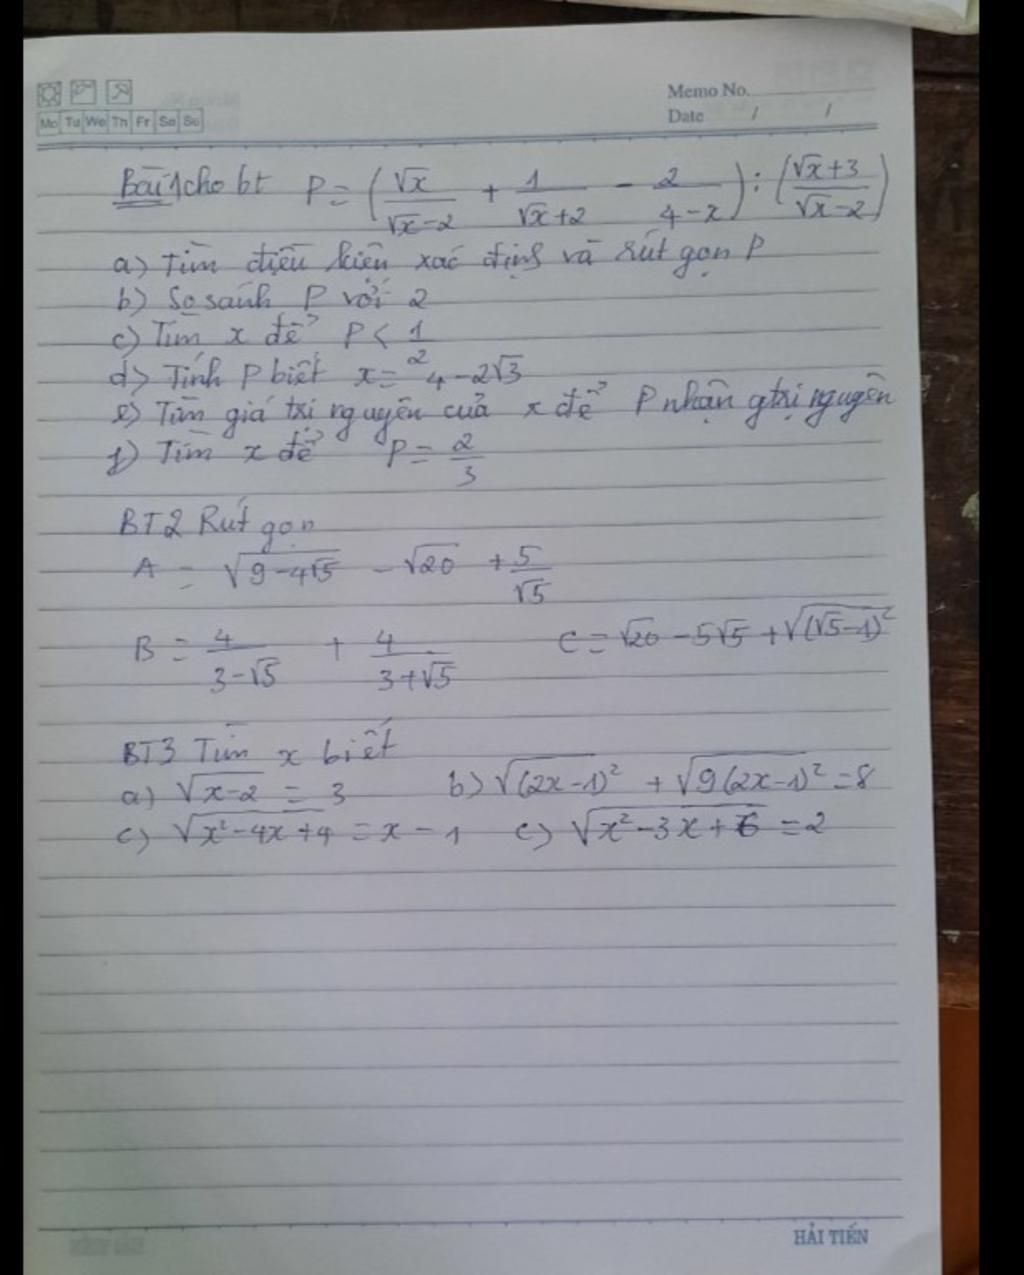 Memo No.
Mo Tu We Th Fr Sa Su
Date / /
Bài 1 cho bt P = (√x/(√x-2) + 1/(√x+2) - 2/(4-x)) : ((√x+3)/(√x-2))
a) Tìm điều kiện xác định và rút gọn P
b) So sánh P với 2
c) Tìm x để P < 1/2
d) Tính P biết x = 4-2√3
e) Tìm giá trị nguyên của x để P nhận gtrị nguyên
f) Tìm x để P = 2/3
BT2 Rút gọn
A = √(9-4√5) - √20 + 5/√5
B = 4/(3-√5) + 4/(3+√5) C = √20 - 5√5 + √((√5-1)²)
BT3 Tìm x biết
a) √(x-2) = 3 b) √((2x-1)²) + √(9(2x-1)²) = 8
c) √(x²-4x+4) = x-1 c) √(x²-3x+6) = 2
HẢI TIẾN